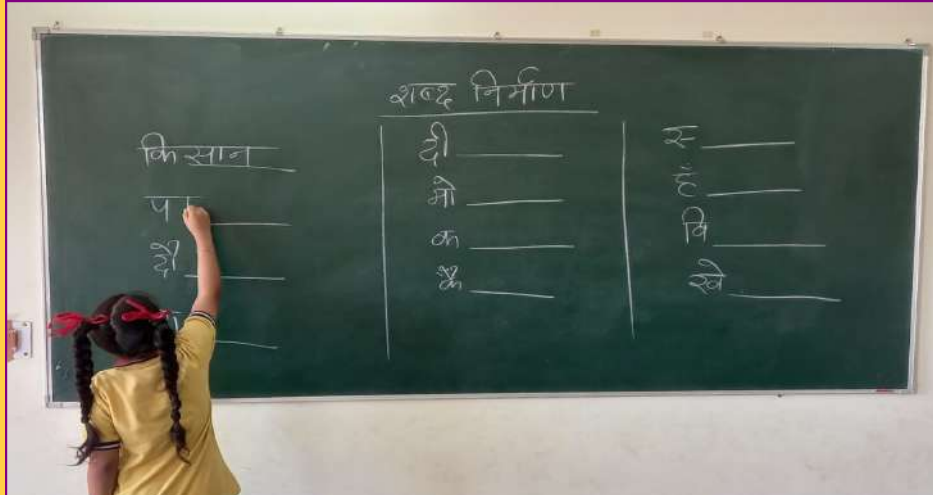 शब्द निर्माण
किसान
पा
दौ
दी
मो
क
कै
स
है
वि
खे